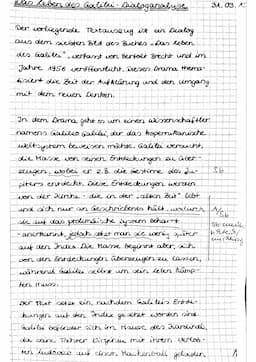 Das Leben des Galilei - Dialoganalyse 31.03.1
Der vorliegende Textauszug ist ein Dialog
aus dem siebten Bild des Buches „Das Leben
des Galilei", verfasst von Bertolt Brecht und im
Jahre 1956 veröffentlicht. Dieses Drama thema-
tisiert die Zeit der Aufklärung und den Umgang
mit dem neuen Denken.
In dem Drama geht es um einen Wissenschaftler
namens Galileo Galilei, der das kopernikanische
Weltsystem beweisen möchte. Galilei versucht,
die Masse von seinen Entdeckungen zu über-
zeugen, wobei er z.B. die Gestirne des Ju- Sb
piters entdeckt. Diese Entdeckungen werden
von der Kirche - die in der „alten Zeit" lebt
und sich nur an Geschriebenes hält, A/
sie auf das ptolemäische System beharrt Sb
- anerkannt, jedoch setzt man sie wenig später
auf den Index. Die Masse beginnt aber, sich
von den Entdeckungen überzeugen zu lassen,
während Galilei selbst um sein Leben kämp-
fen muss.
Der Text setzt ein, nachdem Galileis Entde-
ckungen auf den Index gesetzt worden sind.
Galilei befindet sich im Hause des Kardinals,
da seine Tochter Virginia mit ihrem Verlob-
ten Ludovico auf einen Maskenball geladen A